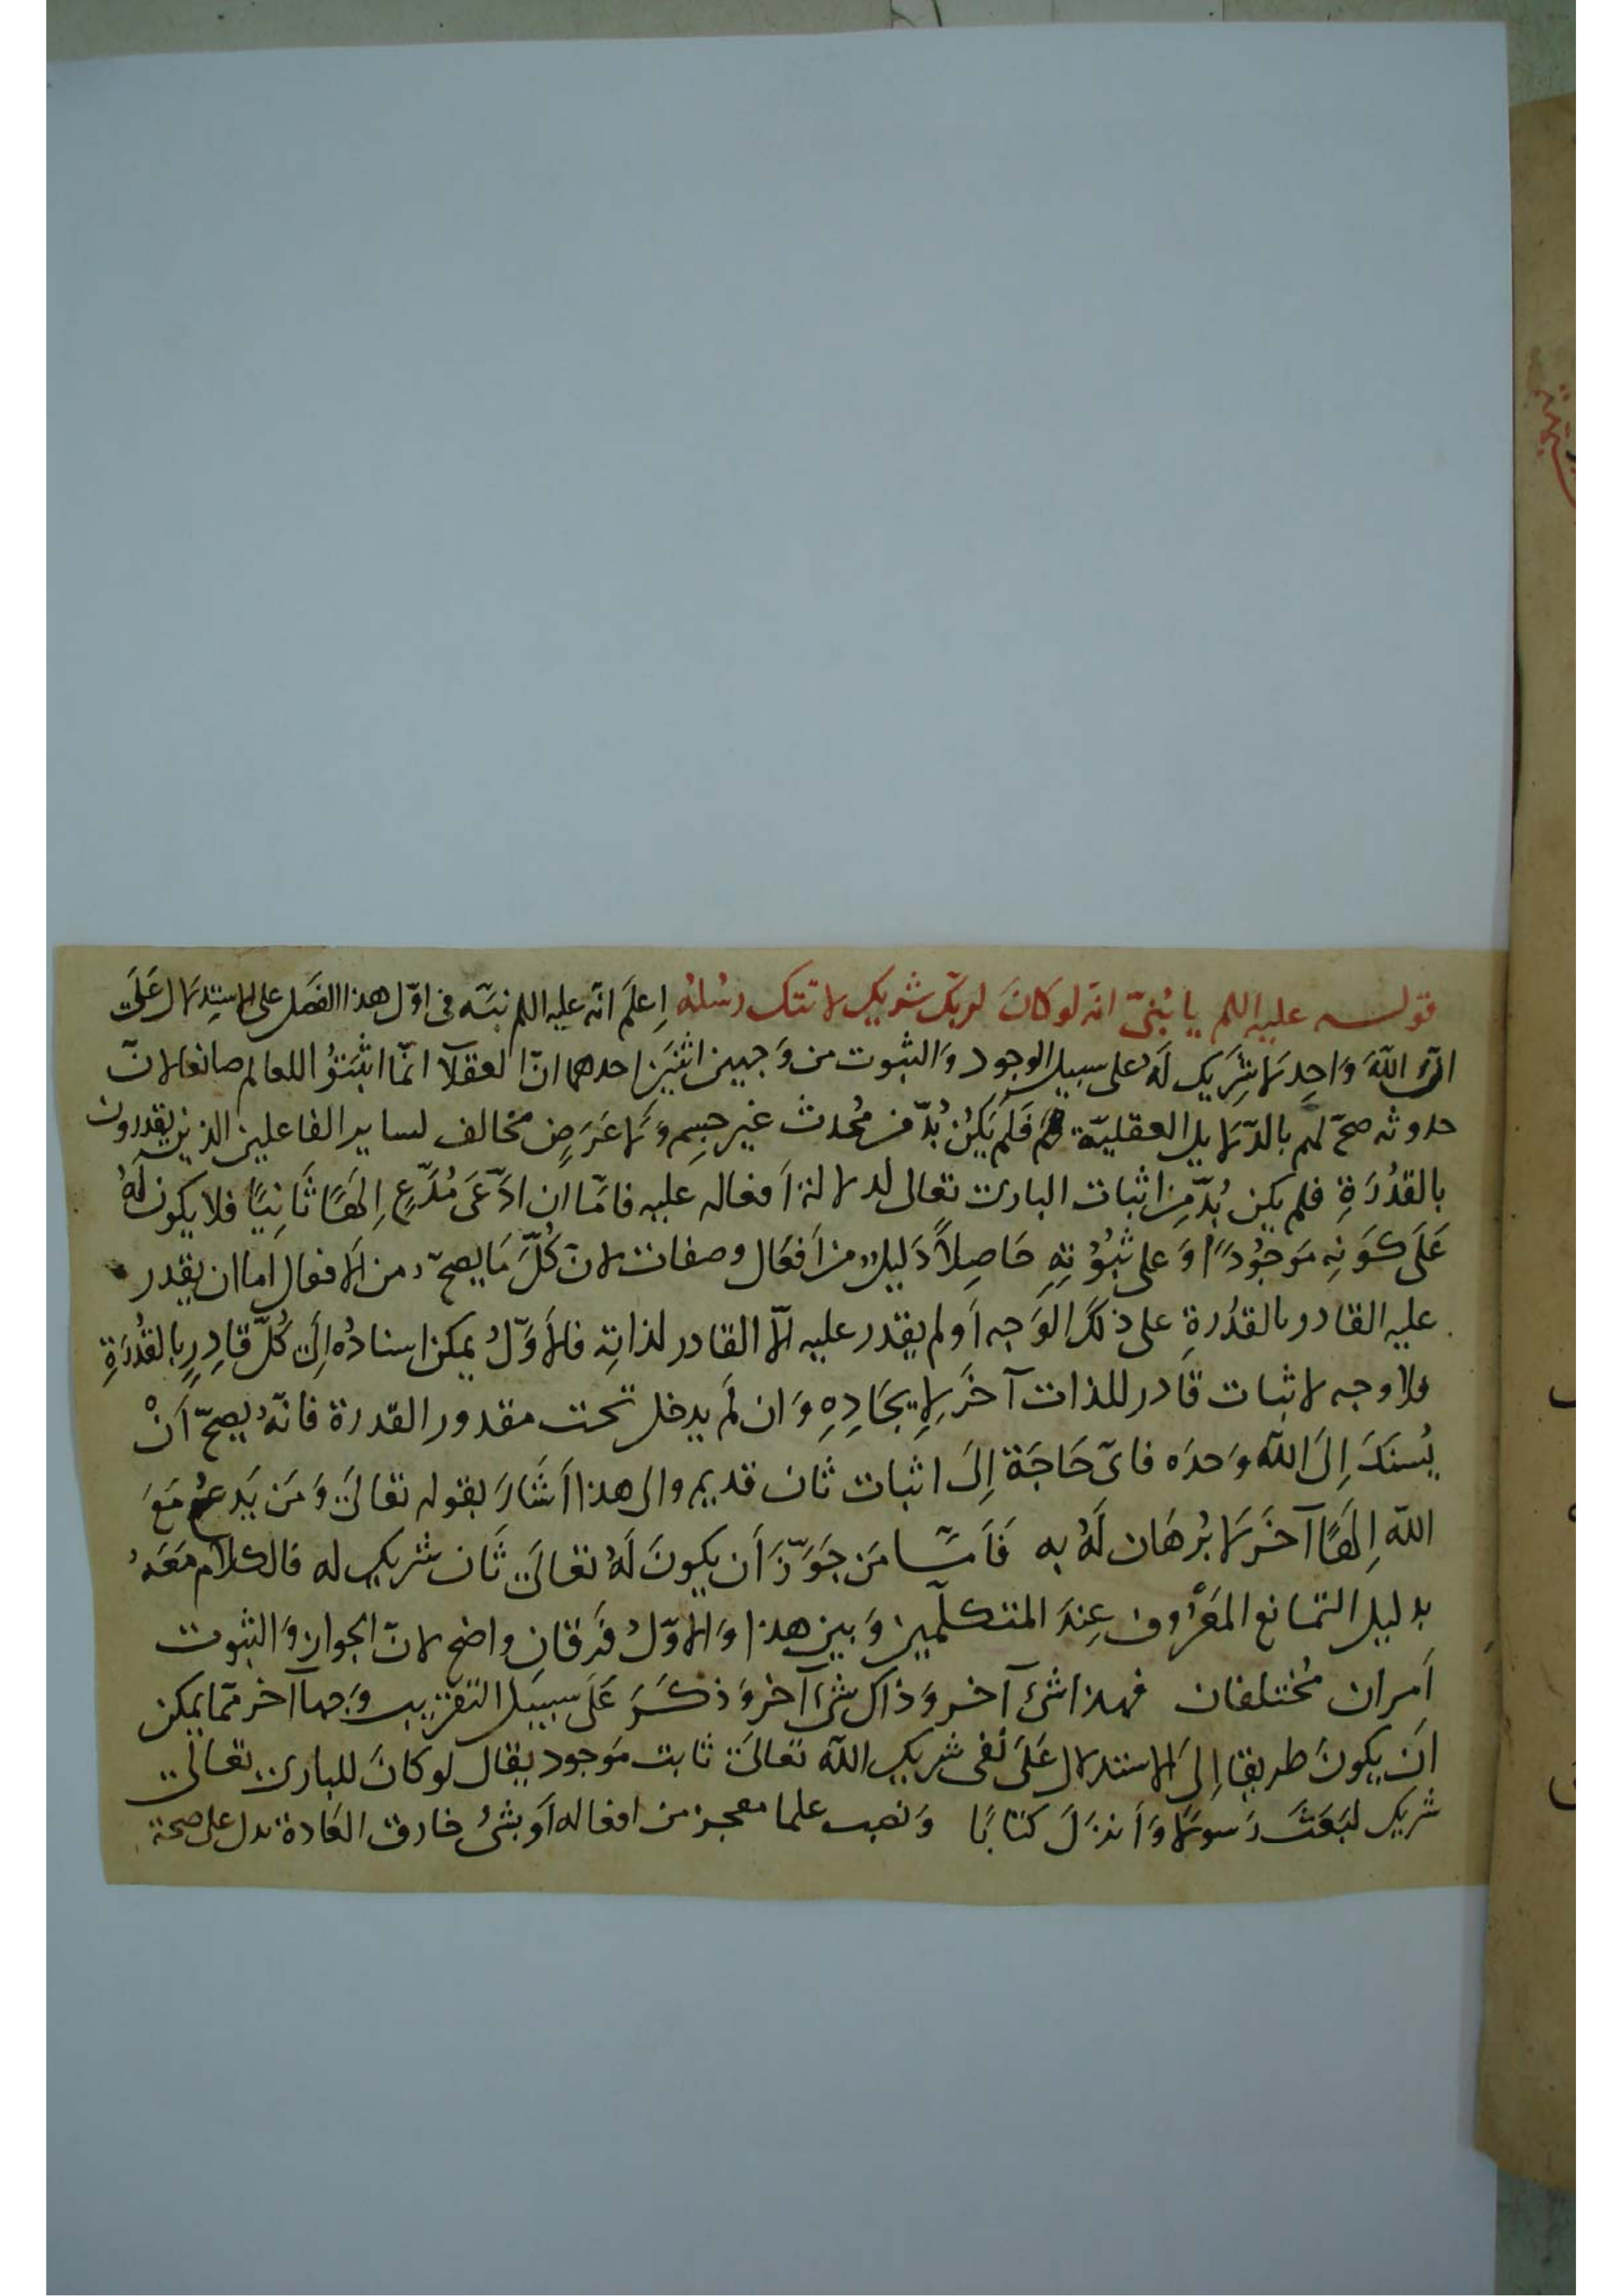 قوله عليه اللم يا بُنَيّ انّه لو كَانَ لربّك شريك لاتتك رسُلهُ اِعلَم انّه عليه اللم نبّه في اوّل هذا الفَصل على الاستِدلال عَلَى
انّ اللّهَ وَاحِد لا شَرِيك لَهُ على سبيل الوجود وَالثبوت من وَجهين اثنَين احدهما انّ العقلآ انّما اثبَتُو اللعالم صانعا لانّ
حدوثه صحّ لهم بالدّلايل العقليّة فَلَم يَكُن بُدّ من مُحدث غير جسِم وَلا عَرَضٍ مخالف لساير الفاعلين الذين يقدرون
بالقُدرَةِ فلم يكن بُدّ مِن اثبات البارى تعالى لدلالة اَفعاله عليه فامّا ان ادَّعَى مُدَّعٍ اِلَهًا ثَانِيًا فلا يكون لَهُ
عَلَى كَوَنِه مَوجُودًا وَعلى ثبُوُتِهِ حَاصِلاً دَليل من اَفعَال وصفات لانّ كُلَّ مَا يصحّ من الافعال اما ان يقدر
عليه القادر بالقدُرةِ على ذلكَ الوَجه اَو لم يقدر عليه الّا القادر لذاتِه فالاَوَّلُ يمكن اسنادُه اِلَى كُلّ قادِرٍ بالقُدُرَةِ
فلا وجه لاثبات قَادر للذات آخَر لاِيجَادِهِ وَان لَم يدخل تحت مقدور القدرة فانّه يصحّ اَنْ
يُسنَدَ اِلَى اللّه وَحدَه فاىّ حَاجَة اِلَى اثبات ثان قديم والى هذا اَشَارَ بقوله تعالَى وَمَن يَدعُ مَعَ
اللّه اِلَهًا آخَرَ لا بُرهَان لَهُ به فَاَمّا مَن جَوَّزَ اَن يكونَ لَهُ تعالَى ثَان شريك له فالكلام مَعَهُ
بدليل التمانع المعَرُوف عِندَ المتكلّمين وَبين هذا وَالاوّلُ فَرقان واضح لانّ الجواز وَالثبوت
اَمران مُختلفان فهذا شئ آخر وَذاك شئ آخر وَذكَرَ عَلَى سبيل التقريب وَجها آخر ممّا يمكن
اَن يكونَ طريقا اِلَى الاستدلال عَلَى نفى شريك اللّه تعالَى ثابت مَوجود يقال لو كانَ للبارى تعالَى
شريك لبَعَثَ رَسولا وَاَنزَلَ كتابًا وَنصب علما معجز من افعاله اَو بشئ خارق العَادة يدل على صحة